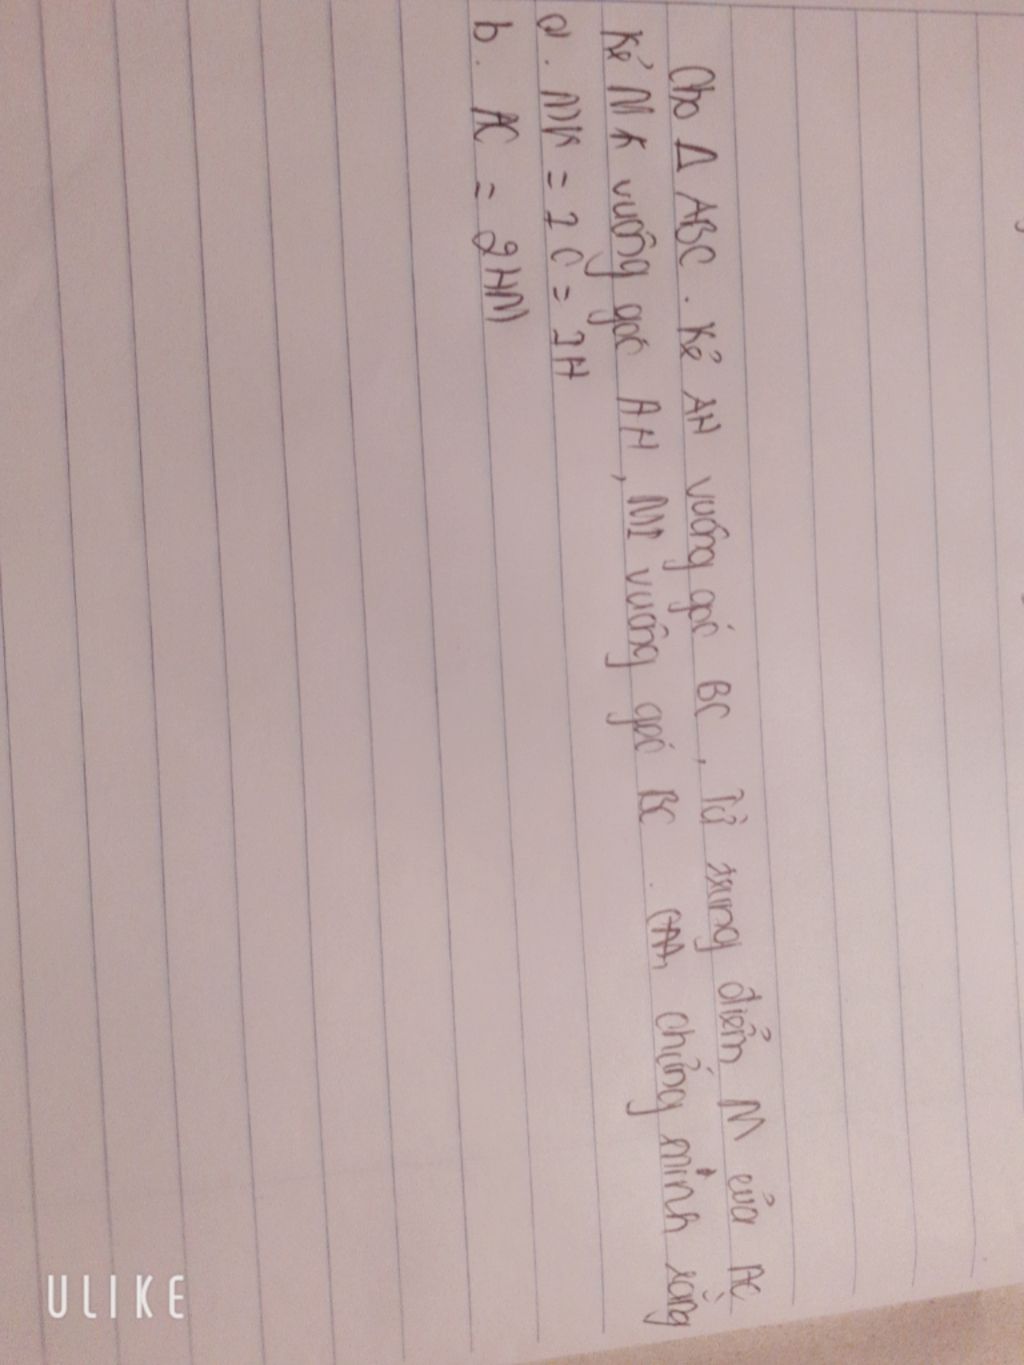 Cho Δ ABC . Kẻ AH vuông góc BC , Từ trung điểm M của AC
Kẻ MK vuông góc AH , MI vuông góc BC . chứng minh rằng
a. MK = IC = IH
b. AC = 2HM
ULIKE